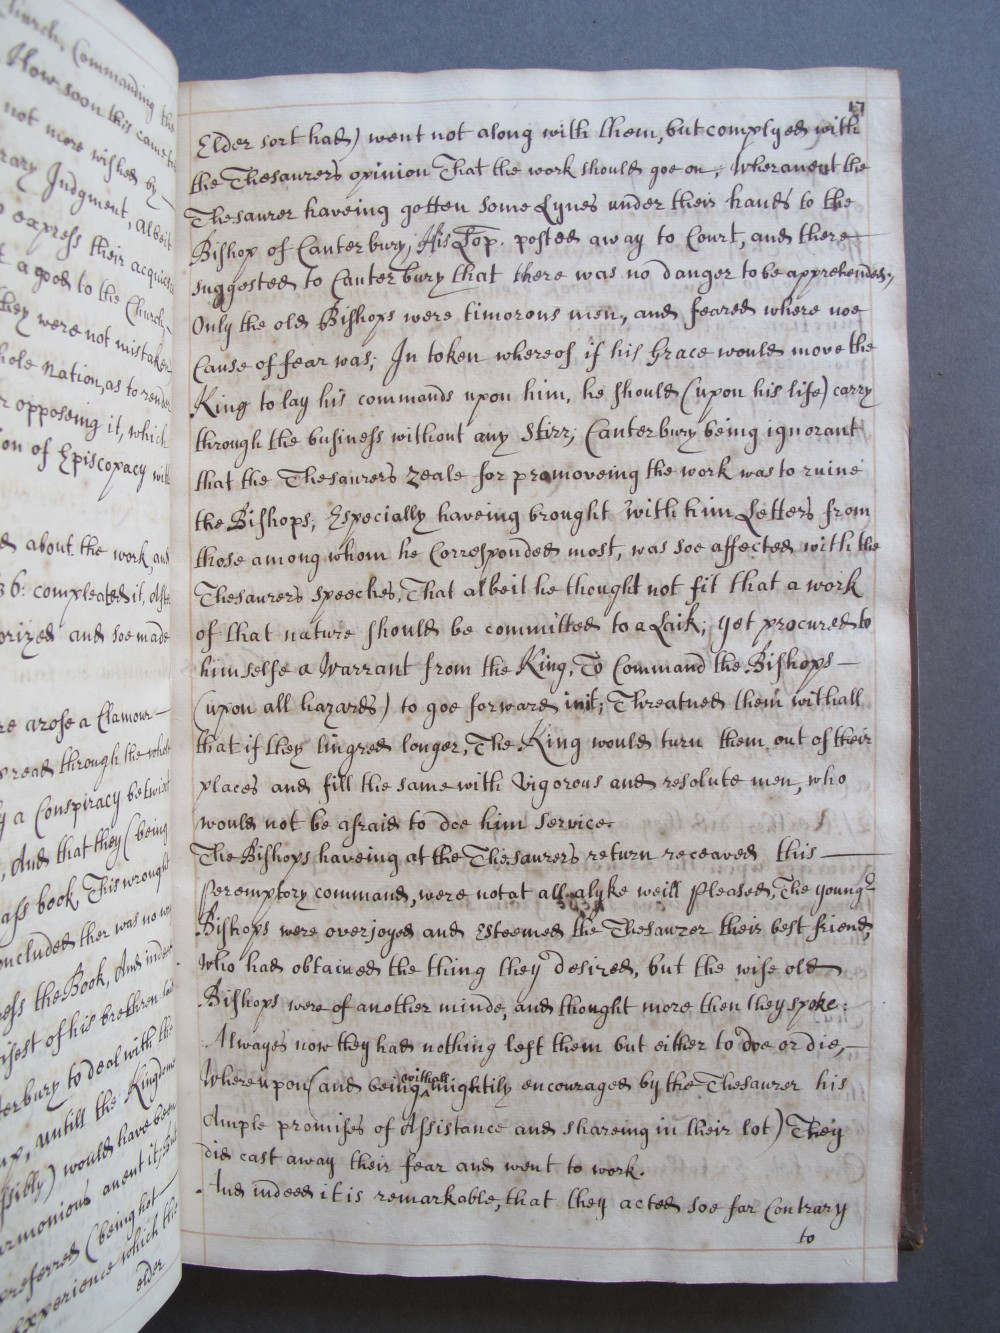 Church, Commanding the
How soon this came
not more wished by
rary Judgment, Albeit
express their acquies
a good to the Church,
they were not mistaken
hole nation, as to render
r opposeing it, which
ion of Episcopacy with
d about the work, and
36: compleated it, Afte
orized and soe made
re arose a Clamour
pread through the whole
a Conspiracy betwixt
, And that they (being
ass book, This wrought
oncluded ther was no
ress the Book, And inde
isest of his brethren
terbury to deal with the
untill the Kingdome
ssibly) would have been
armonious anent it;
preferred (being hot
experience which the
elder
17
Elder sort had) went not along with them, but complyed with
the Thesaurers opinion That the work should goe on; Wheranent the
Thesaurer haveing gotten some Lynes under their hands to the
Bishop of Canterbury; His Lop. posted away to Court, and there
suggested to Canterbury that there was no danger to be apprehended,
Only the old Bishops were timorous men, and feared where noe
Cause of fear was; In token whereof if his Grace would move the
King to lay his commands upon him, he should (upon his life) carry
through the business without any Stirr; Canterbury being ignorant
that the Thesaurers zeale for promoveing the work was to ruine
the Bishops; Especially haveing brought with him Letters from
those among whom he Corresponded most, was soe affected with the
Thesaurers speeches, That albeit he thought not fit that a work
of that nature should be committed to a Laik; yet procured to
himselfe a Warrant from the King, To Command the Bishops
(upon all hazards) to goe forward init; Threatned them withall
that if they lingred longer, The King would turn them out of their
places and fill the same with Vigorous and resolute men, who
would not be afraid to doe him Service.
The Bishops haveing at the Thesaurers return receaved this
Peremptory command, were not at all alyke weill pleased, The youngr
Bishops were overjoyed and Esteemed the Thesaurer their best friend,
Who had obtained the thing they desired, but the wise old
Bishops were of another minde, and thought more then they spoke:
Alwayes now they had nothing left them but either to doe or die,
Whereupon (and being withall mightily encouraged by the Thesaurer his
Ample promises of Assistance and shareing in their lot) They
did cast away their fear and went to work.
And indeed it is remarkable, that they acted soe far Contrary
to